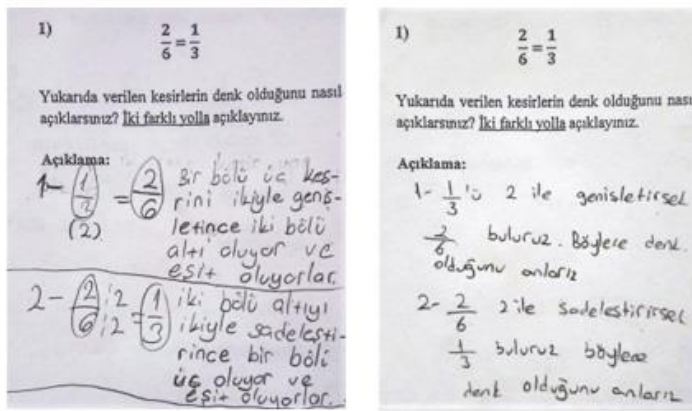 1)
2/6 = 1/3
Yukarıda verilen kesirlerin denk olduğunu nasıl
açıklarsınız? İki farklı yolla açıklayınız.
Açıklama:
1- 1/3 = 2/6 Bir bölü üç kes-
(2) rini ikiyle geniş-
letince iki bölü
altı oluyor ve
eşit oluyorlar.
2- 2/6 :2 :2 = 1/3 iki bölü altıyı
ikiyle sadeleşti-
rince bir bölü
üç oluyor ve
eşit oluyorlar.
1)
2/6 = 1/3
Yukarıda verilen kesirlerin denk olduğunu nası
açıklarsınız? İki farklı yolla açıklayınız.
Açıklama:
1- 1/3'ü 2 ile genisletirsek
2/6 buluruz. Böylece denk.
olduğunu anlarız
2- 2/6 2 ile Sadelestirirsek
1/3 buluruz böylece
denk olduğunu anlarız